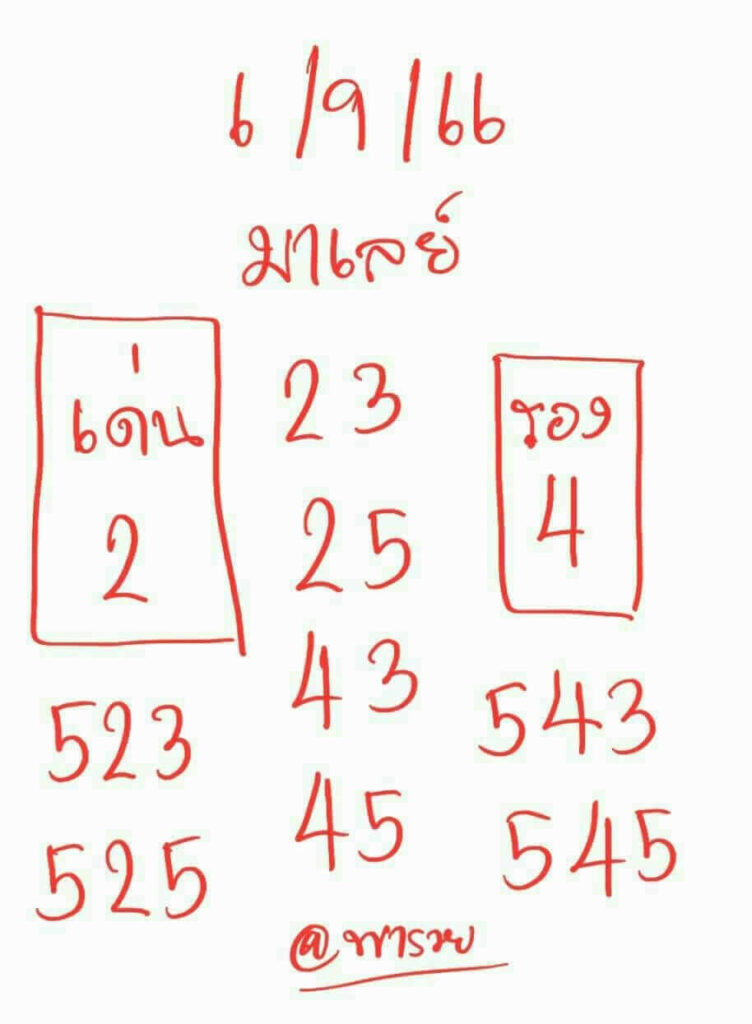 6/9/66
มาเลย์
เด่น
2
23
25
43
45
รอง
4
523
525
543
545
@พารวย